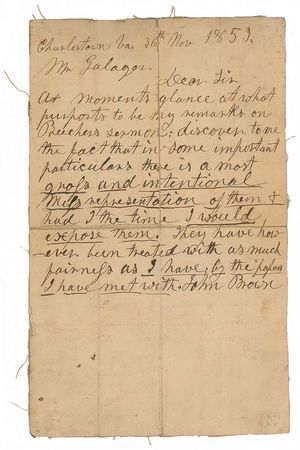 Charlestown Va. 30th Nov 1859.
Mr Galagar
Dear Sir
As moments glance at what
purports to be my remarks on
Beechers sermon; discover to me
the fact that in some important
particulars there is a most
gross and intentional
Missrepresentation of them &
had I the time I would
expose them. They have how-
ever been treated with as much
fairness as I have; by the papers
I have met with. John Brown